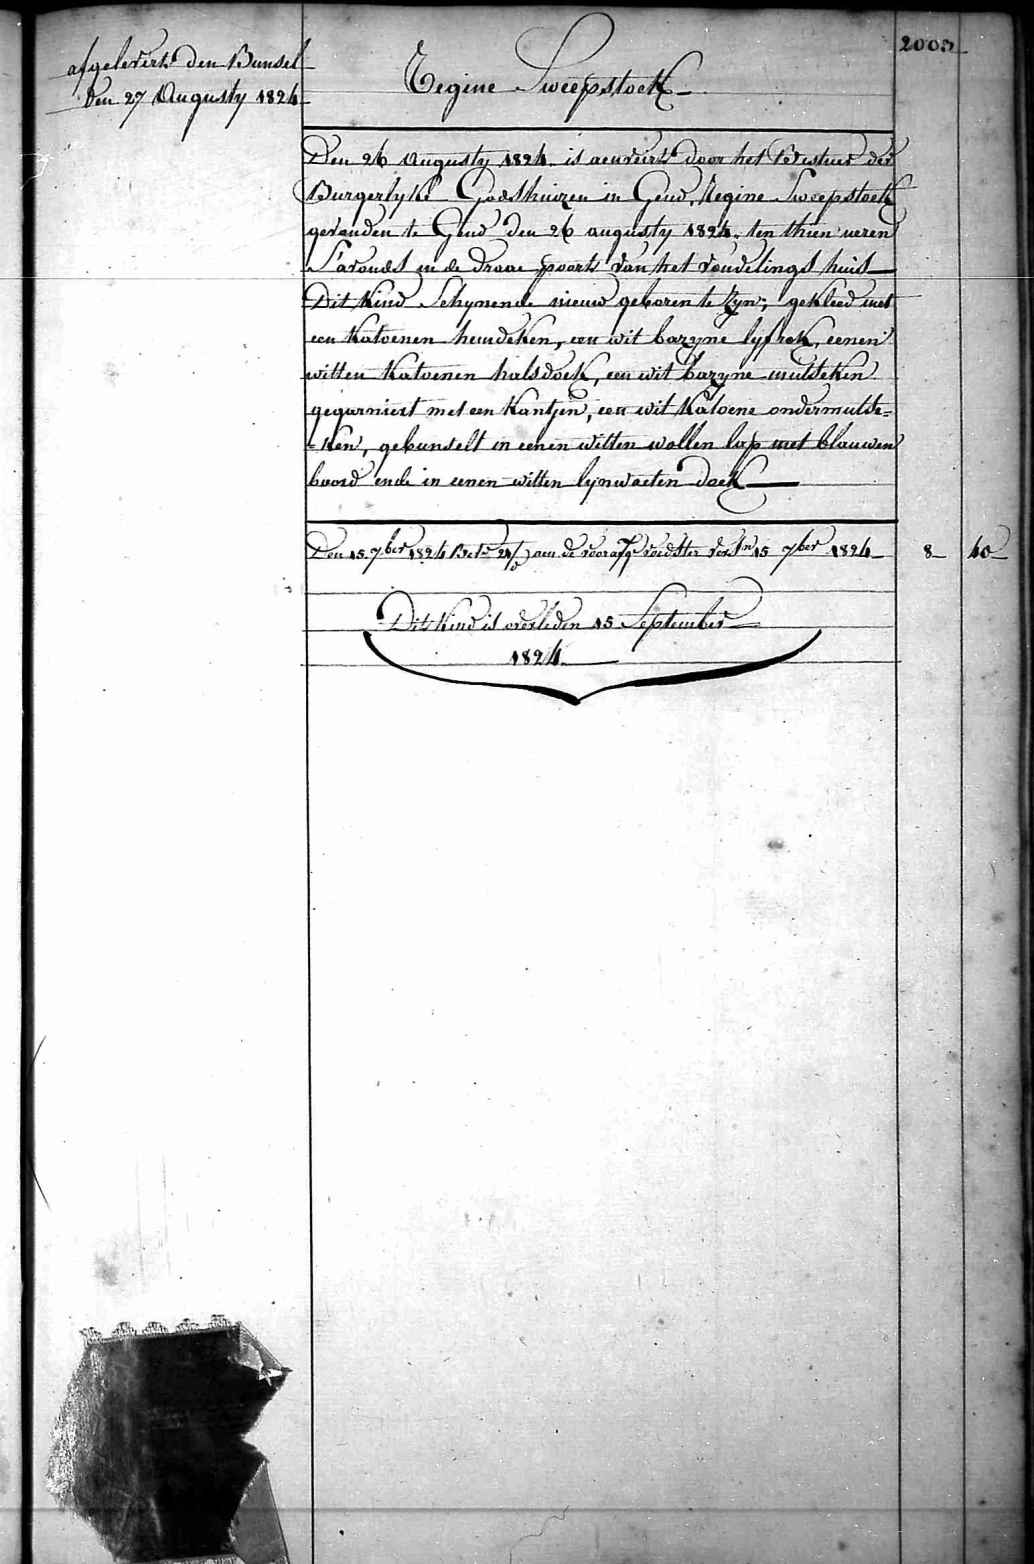 2005
afgeleverd den Bunsel
den 27 Augusty 1824
Regine Sweepstock
Den 26 Augusty 1824. is aenveird door het Bestuer der
Burgerlyke Godshuizen in Gend, Regine Sweepstock
gevonden te Gend den 26 augusty 1824. ten thien ueren
S'avonds in de draae poorte van het vondelings huis
Dit Kind Schynende nieuw geboren te zyn; gekleed met
een Katoenen hemdeken, een wit bazyne lyfrok, eenen
witten Katoenen halsdoek, een wit bazyne mutseken
gegarniert met een Kantjen, een wit Katoene ondermutse=
=ken, gebunselt in eenen witten wollen lap met blauwen
boord ende in eenen witten lynwaeten doek
Den 15. 7ber 1824 aen de voorafg voedster 15 7ber 1824 8 40
Dit Kind is overleden 15 September
1824